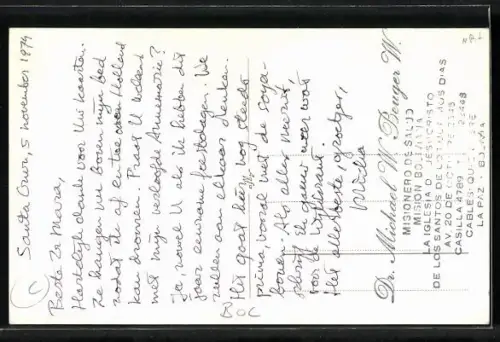 Santa Cruz, 5 november 1974
Beste Zr Mara,
Hartelijk dank voor Uw kaarten.
Ze hangen nu boven mijn bed
zodat ik af en toe over Holland
kan dromen. Praat U weleens
met mijn verloofde Annemarie?
Ja, zowel U als ik hebben dit
jaar eenzame feestdagen. We
zullen aan elkaar denken.
Het gaat hier nog steeds
prima, vooral met de soya-
bonen. Als alles meezit,
schrijf ik gauw weer wat
voor de
Het allerbeste, groetjes,
Dr. Michael W. Benger W.
MISIONERO DE SALUD
MISION BOLIVIA
LA IGLESIA DE JESUCRISTO
DE LOS SANTOS DE LOS ULTIMOS DIAS
AV. 20 DE
CASILLA 4789
CABLES:
LA PAZ - BOLIVIA